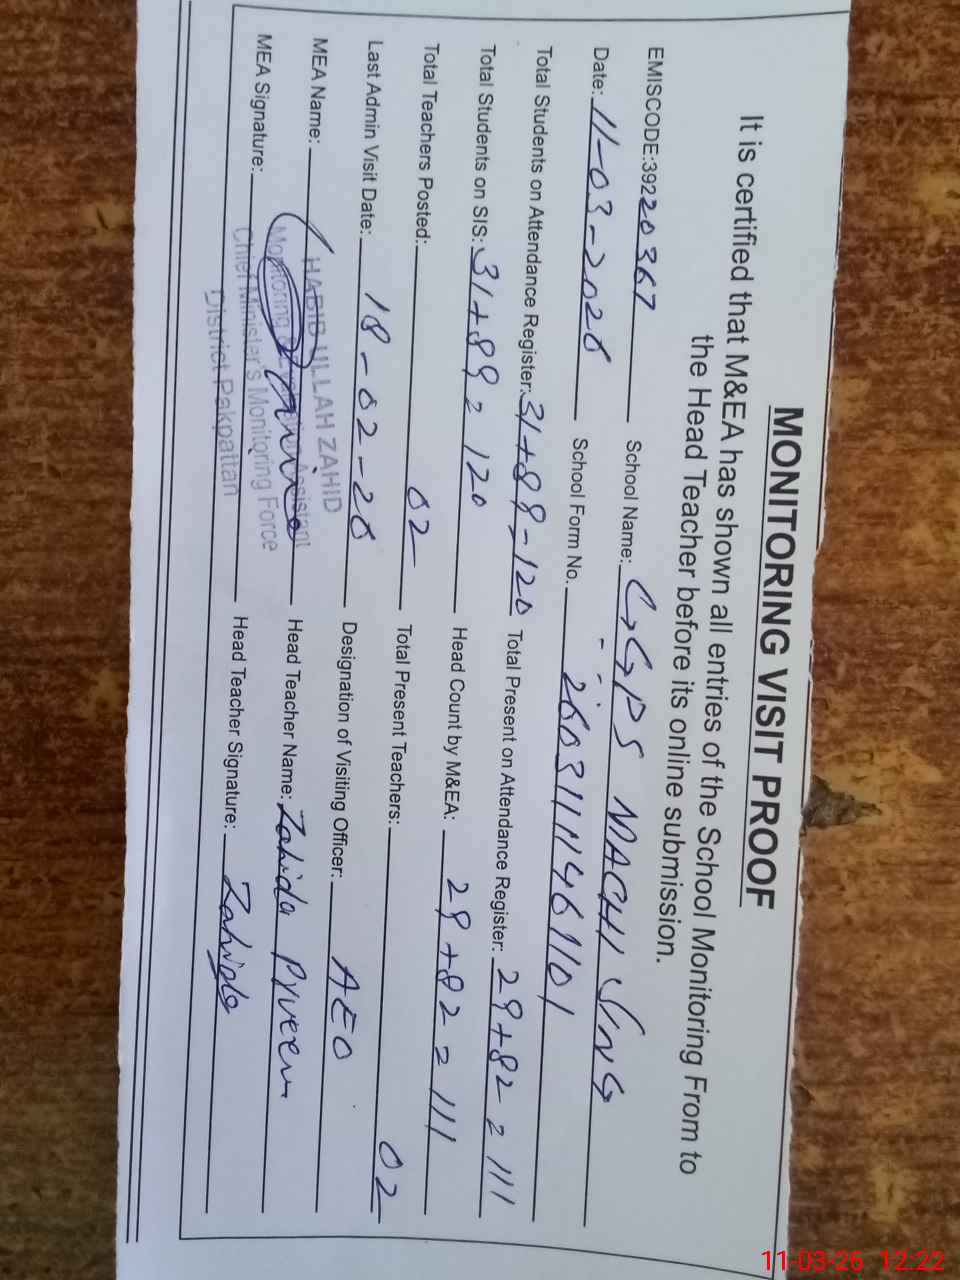 MONITORING VISIT PROOF
It is certified that M&EA has shown all entries of the School Monitoring From to
the Head Teacher before its online submission.
EMISCODE:39220367 School Name: GGPS MACHI
Date: 11-03-2026 School Form No. 26031111461101
Total Students on Attendance Register: 31+89-120 Total Present on Attendance Register: 29+82=111
Total Students on SIS: 31+89=120 Head Count by M&EA: 29+82=111
Total Teachers Posted: 02 Total Present Teachers: 02
Last Admin Visit Date: 18-02-26 Designation of Visiting Officer: AEO
MEA Name: HABIB ULLAH ZAHID Head Teacher Name: Zahida Prveen
Monitoring & Evaluation Assistant
MEA Signature: Chief Minister's Monitoring Force Head Teacher Signature: Zahida
District Pakpattan
11-03-26 12:22